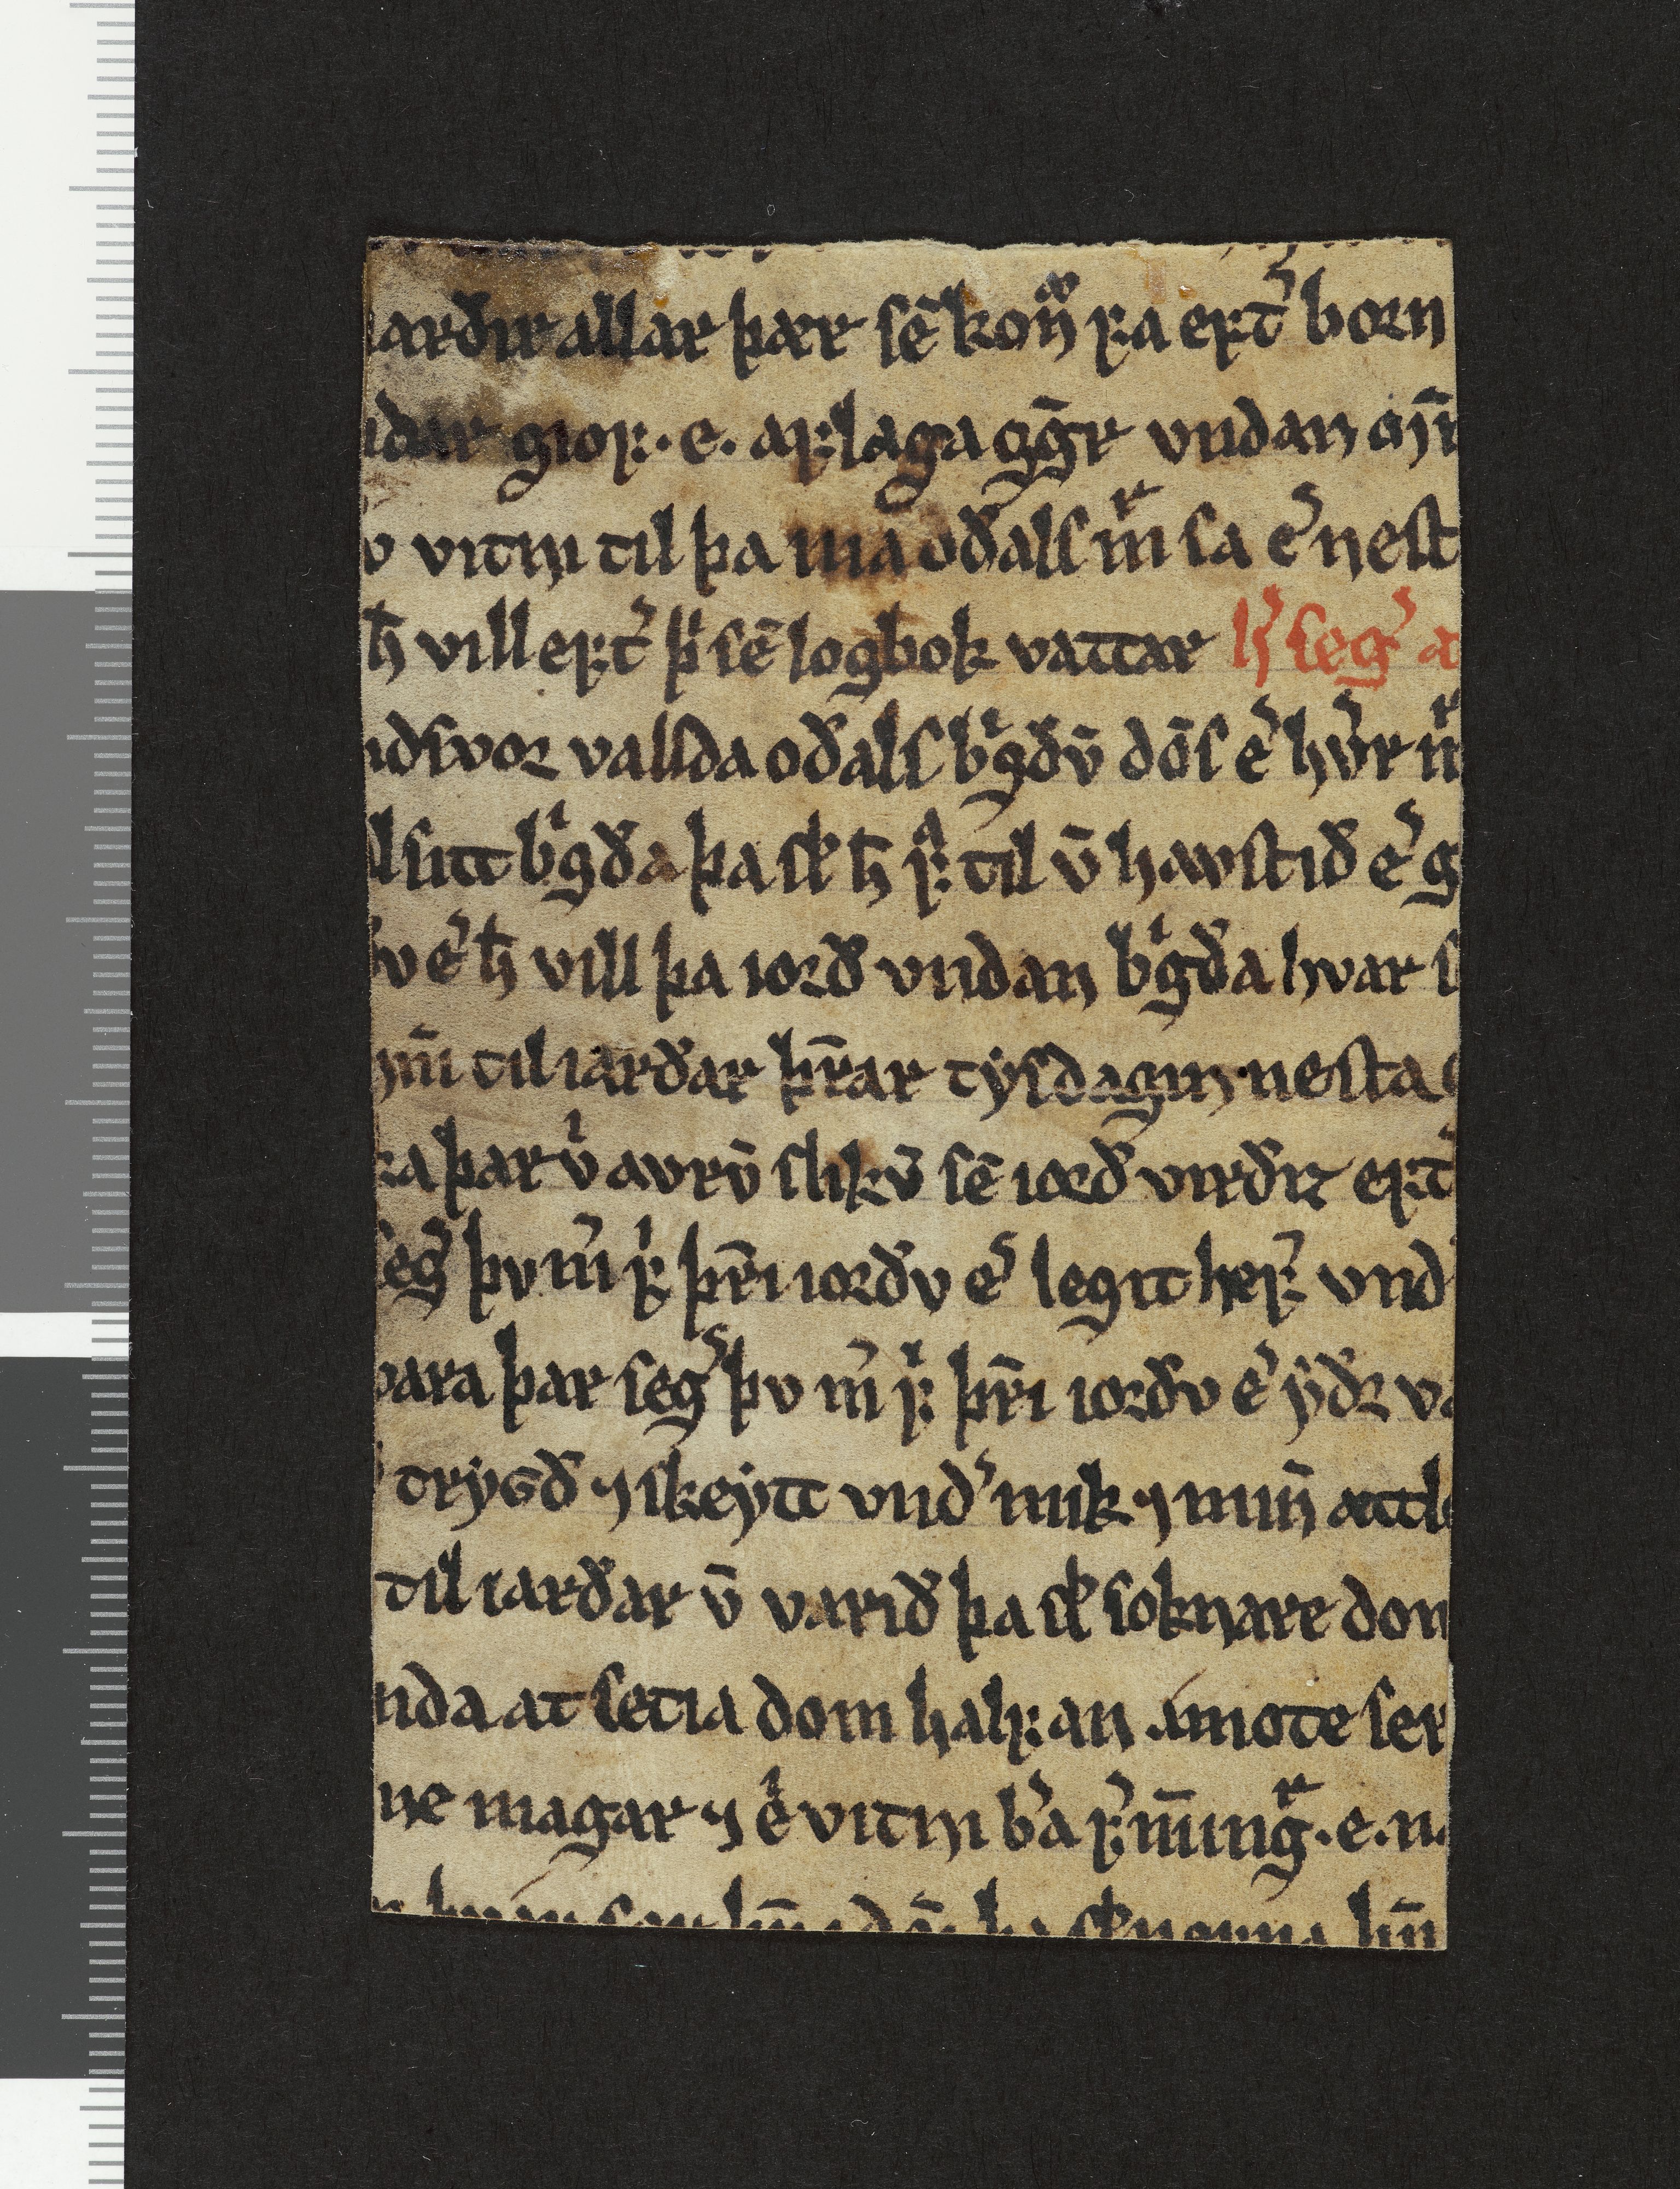 arðir allar þær sē̄ konᷠn fa ept᷒ born
ıdar giof· e· aflaga gīgr vndan óȷ̄ı
v vitni til þa ma oðals mͬ sa e᷒ nest
ħ vill ept᷒ þͥ sē logbok vattar h᷒ seg᷒ a
ndsvor vallda oðals bͥgðū dōs e᷒ hv᷒r nͬ
lsitt bͥgða þa sꝃ ħ fͣ til v̄ havstið e᷒ g
v e᷒ ħ vill þa iorð vndan bͥgða hvar s
nū til iarðar þr̄ar tysdagin nesta
ra þar vͥ avrū slikū sē iorð virðiz ept᷒
seg᷒ þv m᷒ fͥ þr̄i iorðv e᷒ legit hef᷒ vnd᷒
vara þar seg᷒ þv m᷒ fͥ þr̄i iorðv e᷒ yðr va
trygð ⁊ skeytt vnd᷒ mik ⁊ minn̄ ættl
til iarðar v̄ varið þa sꝃ soknare dom
nda at setia dom halfan .amote ser
ne magar ⁊ eͥ vitni b᷒a f᷒ nūngͬ·e·n